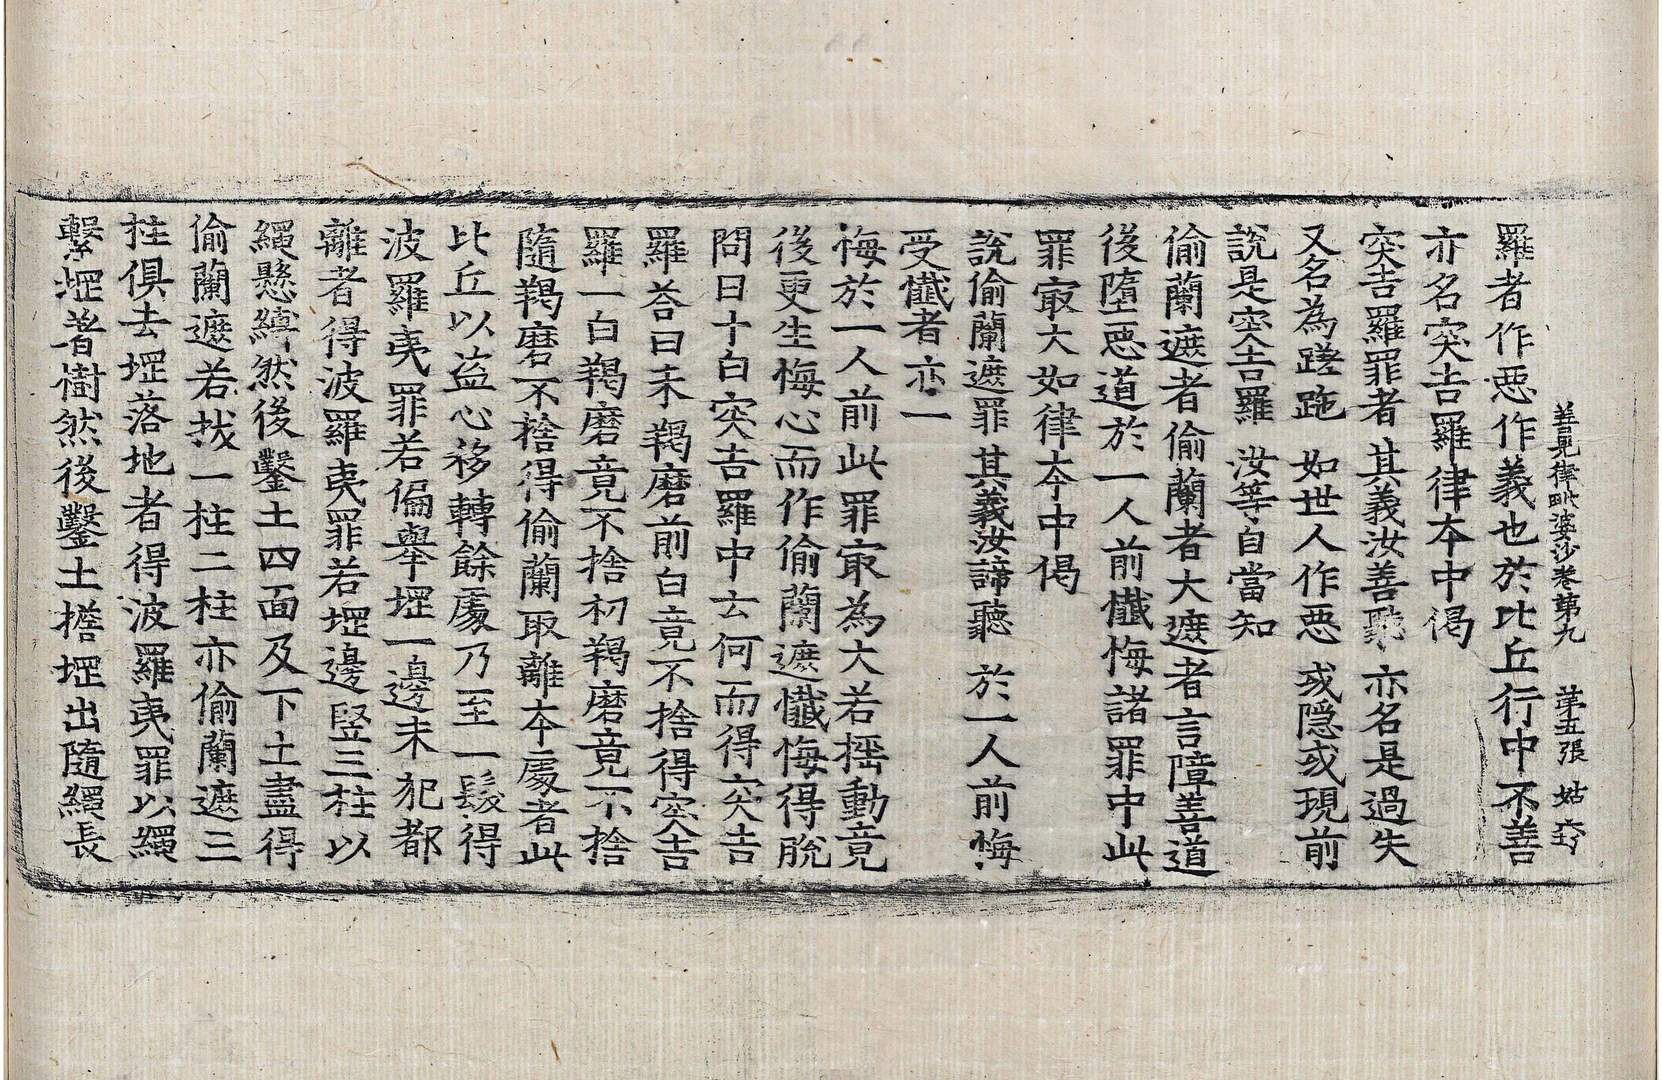 善見律毗婆沙卷第九 第五張 姑
羅者作惡作義也於比丘行中不善
亦名突吉羅律本中偈
突吉羅罪者 其義汝善聽 亦名是過失
又名為蹉跎 如世人作惡 或隱或現前
說是突吉羅 汝等自當知
偷蘭遮者偷蘭者大遮者言障善道
後墮惡道於一人前懺悔諸罪中此
罪㝡大如律本中偈
說偷蘭遮罪 其義汝諦聽 於一人前悔
受懺者亦一
悔於一人前此罪㝡為大若摇動竟
後更生悔心而作偷蘭遮懺悔得脫
問曰十白突吉羅中云何而得突吉
羅荅曰未羯磨前白竟不捨得突吉
羅一白羯磨竟不捨初羯磨竟不捨
隨羯磨不捨得偷蘭取離本處者此
比丘以盗心移轉餘處乃至一髮得
波羅夷罪若偏舉堽一邊未犯都
離者得波羅夷罪若堽邊竪三柱以
繩懸縛然後鑿土四面及下土盡得
偷蘭遮若拔一柱二柱亦偷蘭遮三
柱俱去堽落地者得波羅夷罪以繩
繫堽著樹然後鑿土擔堽出隨繩長